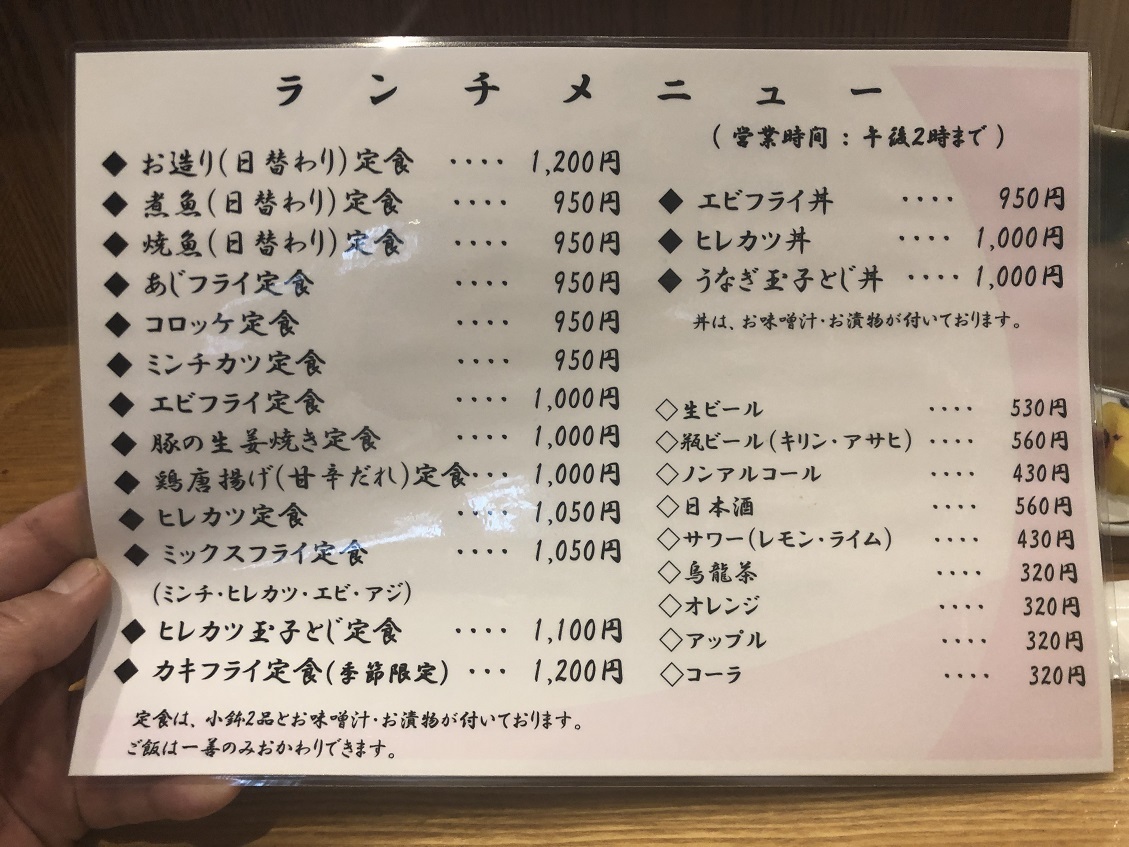 ランチメニュー
(営業時間:午後2時まで)
◆お造り(日替わり)定食 ‥‥ 1,200円
◆煮魚(日替わり)定食 ‥‥ 950円
◆焼魚(日替わり)定食 ‥‥ 950円
◆あじフライ定食 ‥‥ 950円
◆コロッケ定食 ‥‥ 950円
◆ミンチカツ定食 ‥‥ 950円
◆エビフライ定食 ‥‥ 1,000円
◆豚の生姜焼き定食 ‥‥ 1,000円
◆鶏唐揚げ(甘辛だれ)定食‥‥ 1,000円
◆ヒレカツ定食 ‥‥ 1,050円
◆ミックスフライ定食 ‥‥ 1,050円
(ミンチ・ヒレカツ・エビ・アジ)
◆ヒレカツ玉子とじ定食 ‥‥ 1,100円
◆カキフライ定食(季節限定) ‥・ 1,200円
定食は、小鉢2品とお味噌汁・お漬物が付いております。
ご飯は一善のみおかわりできます。
◆エビフライ丼 ‥‥ 950円
◆ヒレカツ丼 ‥‥ 1,000円
◆うなぎ玉子とじ丼 ‥‥ 1,000円
丼は、お味噌汁・お漬物が付いております。
◇生ビール ‥‥ 530円
◇瓶ビール(キリン・アサヒ) ‥‥ 560円
◇ノンアルコール ‥‥ 430円
◇日本酒 ‥‥ 560円
◇サワー(レモン・ライム) ‥‥ 430円
◇烏龍茶 ‥‥ 320円
◇オレンジ ‥‥ 320円
◇アップル ‥‥ 320円
◇コーラ ‥‥ 320円